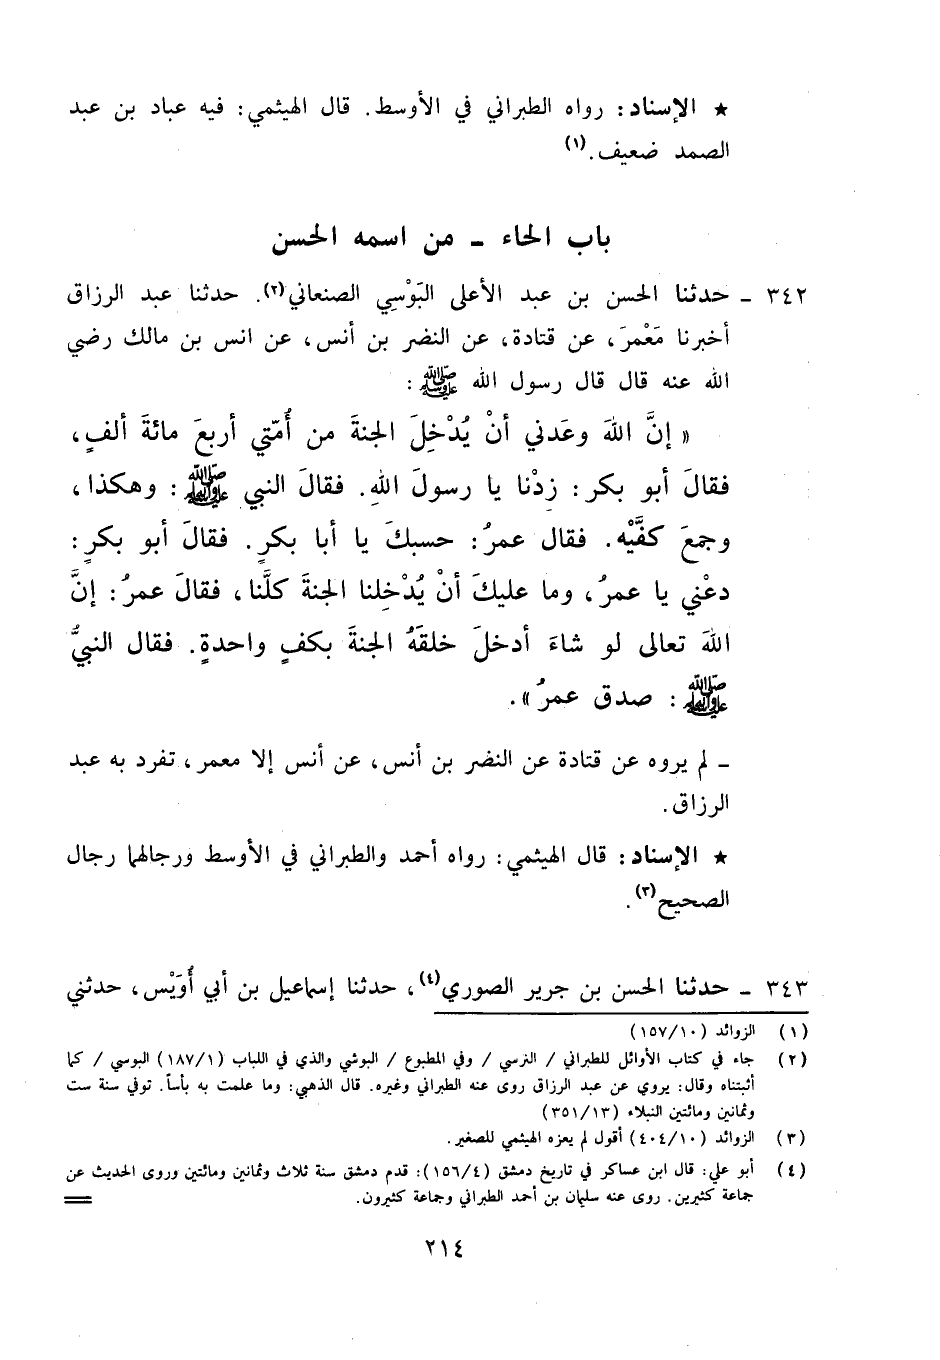 ★ الإسناد: رواه الطبراني في الأوسط. قال الهيثمي: فيه عباد بن عبد
الصمد ضعيف.(١)
باب الحاء ـ من اسمه الحسن
٣٤٢ ـ حدثنا الحسن بن عبد الأعلى البَوْسِي الصنعاني(٢). حدثنا عبد الرزاق
أخبرنا مَعْمرَ، عن قتادة، عن النضر بن أنس، عن انس بن مالك رضي
الله عنه قال قال رسول الله ﷺ :
« إنَّ اللهَ وعَدني أنْ يُدْخِلَ الجنةَ من أُمّتي أربعَ مائةَ ألفٍ،
فقالَ أبو بكر: زِدْنا يا رسولَ اللهِ. فقالَ النبي ﷺ : وهكذا،
وجمعَ كفَّيْه. فقال عمرُ: حسبكَ يا أبا بكرٍ. فقالَ أبو بكرٍ:
دعْني يا عمرُ، وما عليكَ أنْ يُدْخِلنا الجنةَ كلَّنا، فقالَ عمرُ: إنَّ
اللهَ تعالى لو شاءَ أدخلَ خلقَهُ الجنةَ بكفٍ واحدةٍ. فقال النبيُّ
ﷺ : صدق عمرُ».
ـ لم يروه عن قتادة عن النضر بن أنس، عن أنس إلا معمر، تفرد به عبد
الرزاق.
★ الإسناد: قال الهيثمي: رواه أحمد والطبراني في الأوسط ورجالهما رجال
الصحيح(٣).
٣٤٣ ـ حدثنا الحسن بن جرير الصوري(٤)، حدثنا إسماعيل بن أبي أُوَيْس، حدثني
(١) الزوائد (١٥٧/١٠)
(٢) جاء في كتاب الأوائل للطبراني / النرسي / وفي المطبوع / البوشي والذي في اللباب (١٨٧/١) البوسي / كما
أثبتناه وقال: يروي عن عبد الرزاق روى عنه الطبراني وغيره. قال الذهبي: وما علمت به بأساً. توفي سنة ست
وثمانين ومائتين النبلاء (٣٥١/١٣)
(٣) الزوائد (٤٠٤/١٠) أقول لم يعزه الهيثمي للصغير.
(٤) أبو علي: قال ابن عساكر في تاريخ دمشق (١٥٦/٤): قدم دمشق سنة ثلاث وثمانين ومائتين وروى الحديث عن
جماعة كثيرين. روى عنه سليمان بن أحمد الطبراني وجماعة كثيرون. =
٢١٤